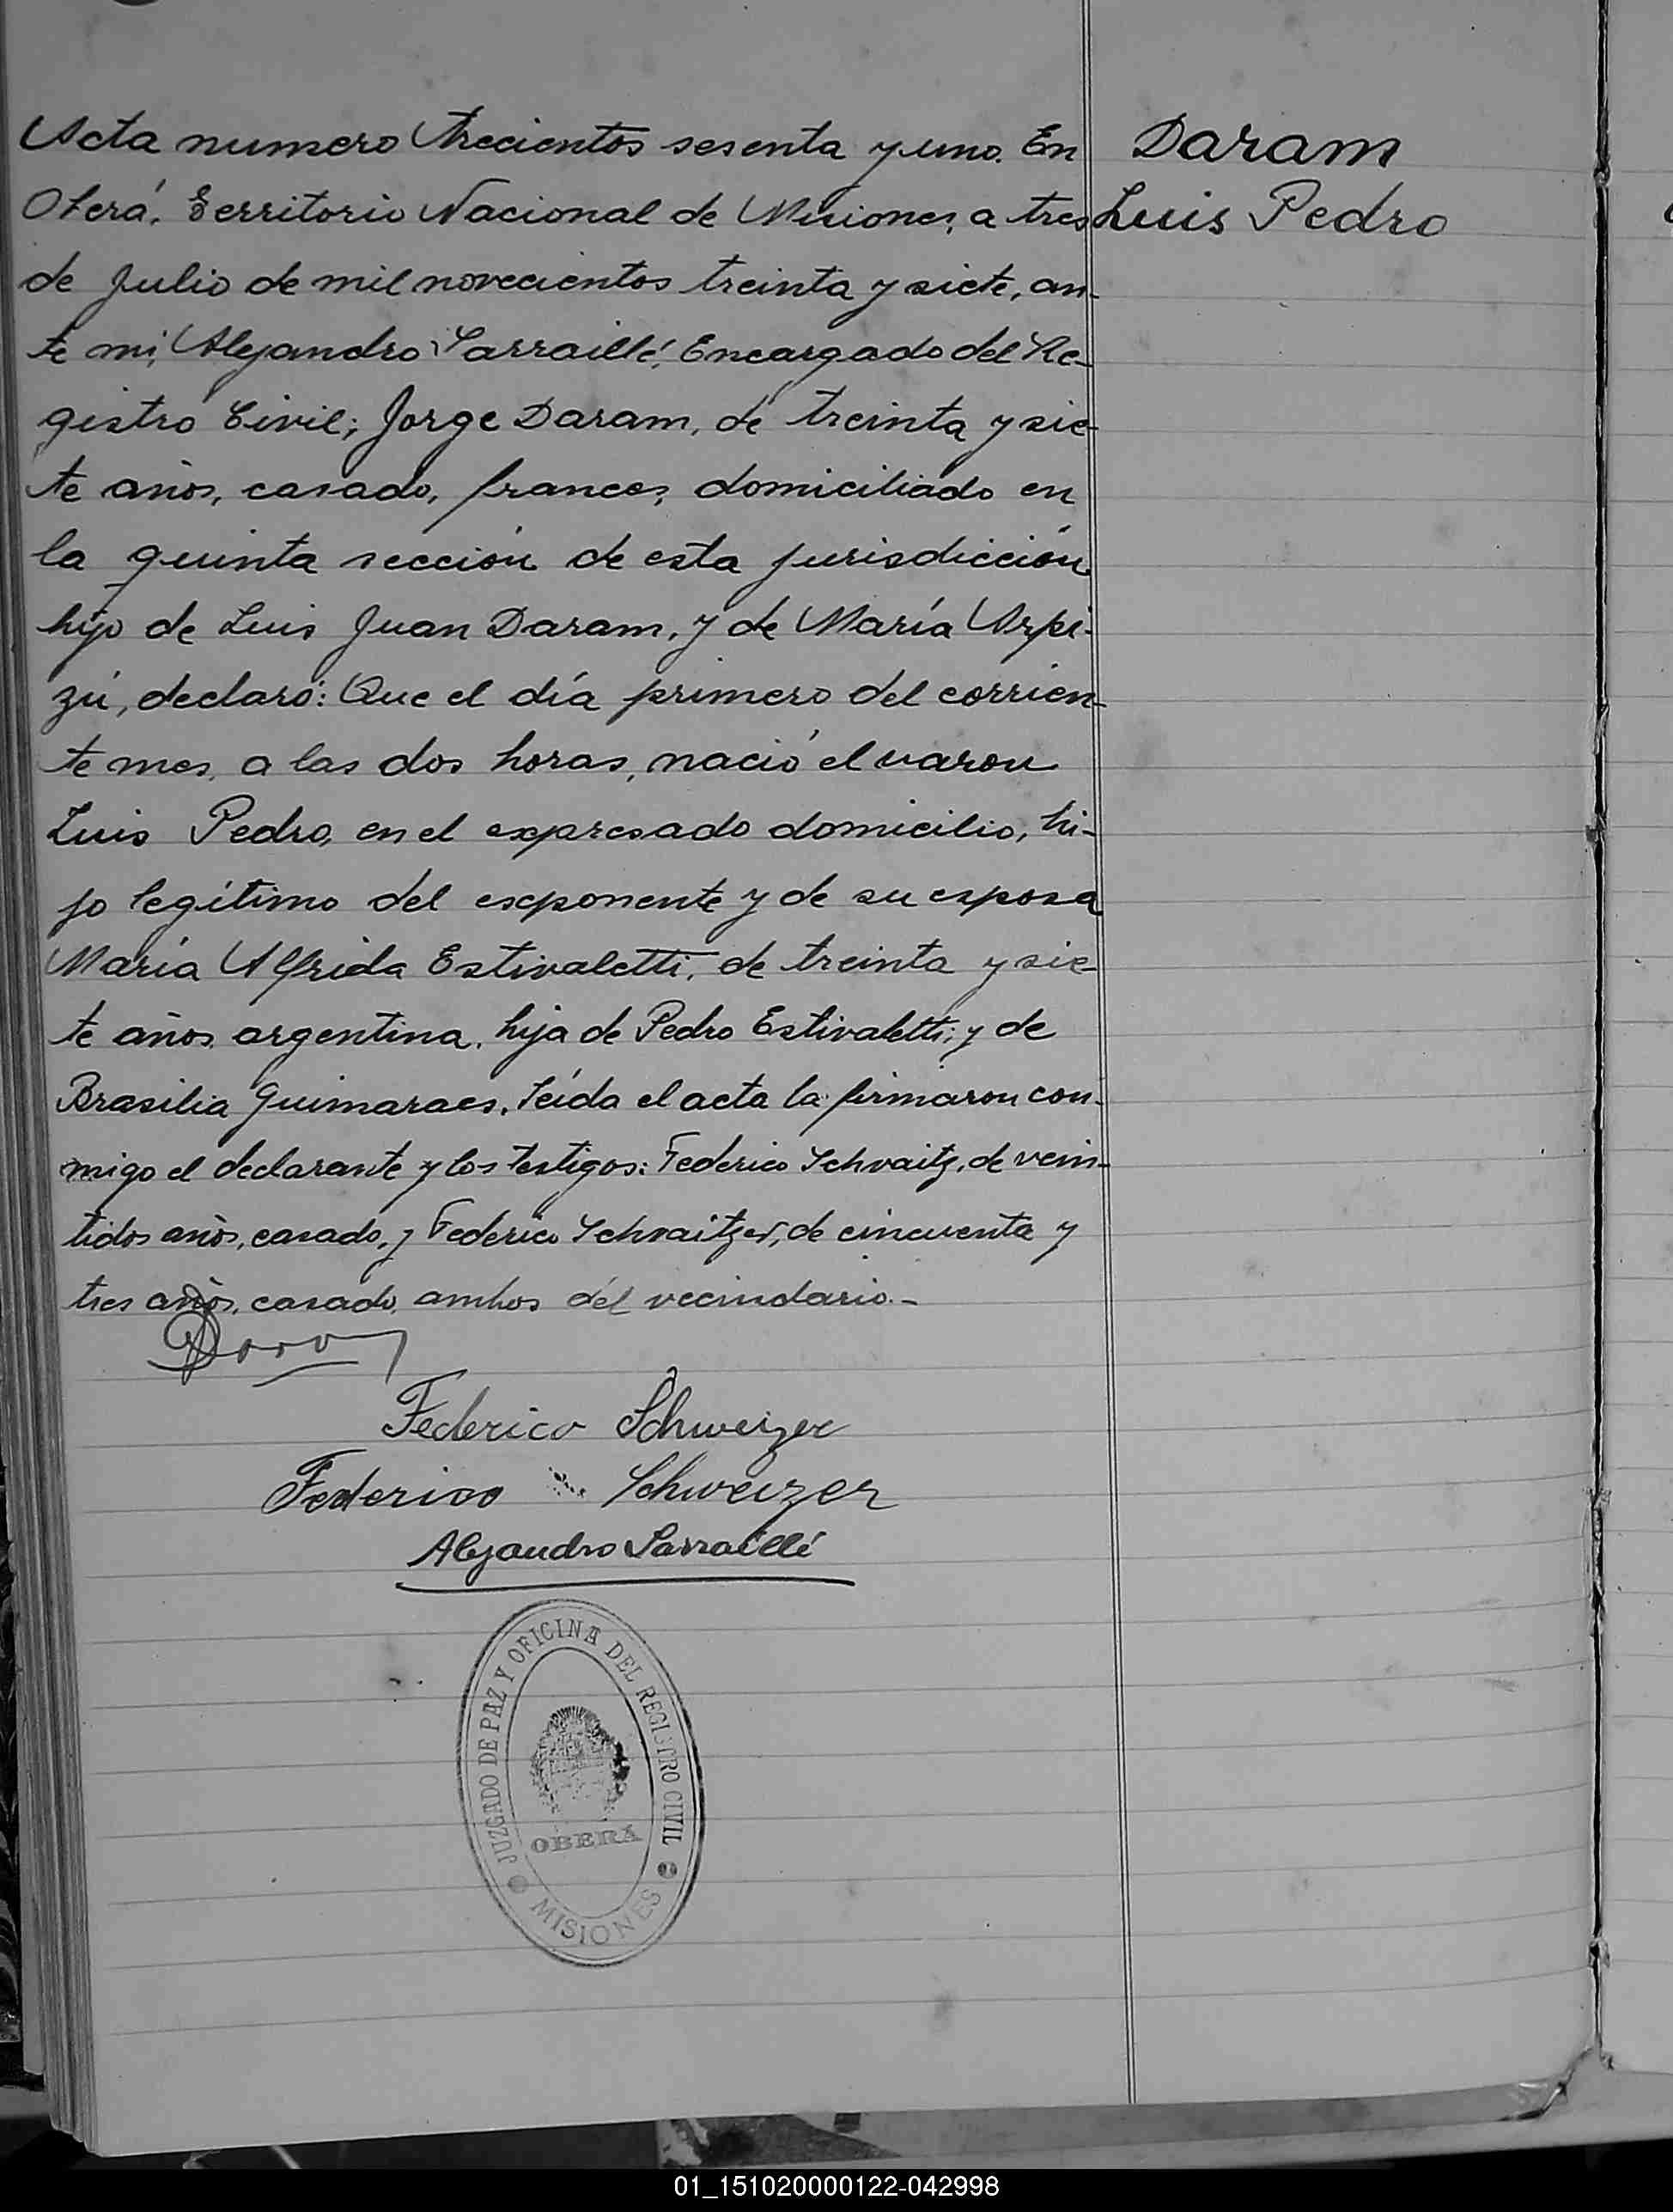 Acta numero trecientos sesenta y uno. En
Oberá, Territorio Nacional de Misiones, a tres
de Julio de mil novecientos treinta y siete, an-
te mi, Alejandro Sarraillé, Encargado del Re-
gistro Civil; Jorge Daram, de treinta y sie-
te años, casado, frances, domiciliado en
la quinta sección de esta jurisdicción
hijo de Luis Juan Daram, y de María Arpi-
zú, declaró: Que el día primero del corrien-
te mes, a las dos horas, nació el varon
Luis Pedro, en el expresado domicilio, hi-
jo legítimo del exponente y de su esposa
María Alfrida Estivaletti, de treinta y sie-
te años, argentina, hija de Pedro Estivaletti; y de
Brasilia Guimaraes. Leída el acta la firmaron con-
migo el declarante y los testigos: Federico Schvaitz, de vein-
tidos años, casado, y Federico Schvaitzer, de cincuenta y
tres años, casado, ambos del vecindario.-
Daram
Luis Pedro
Federico Schweizer
Federico Schweizer
Alejandro Sarraillé
JUZGADO DE PAZ Y OFICINA DEL REGISTRO CIVIL
OBERÁ
MISIONES
01_151020000122-042998